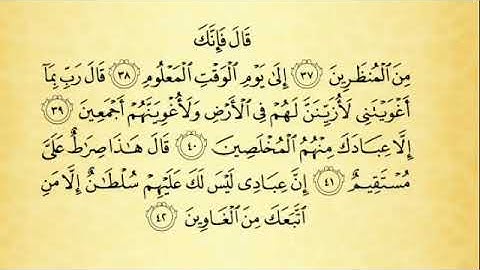 قَالَ فَإِنَّكَ
مِنَ ٱلْمُنظَرِينَ ٣٧ إِلَىٰ يَوْمِ ٱلْوَقْتِ ٱلْمَعْلُومِ ٣٨ قَالَ رَبِّ بِمَآ
أَغْوَيْتَنِى لَأُزَيِّنَنَّ لَهُمْ فِى ٱلْأَرْضِ وَلَأُغْوِيَنَّهُمْ أَجْمَعِينَ ٣٩
إِلَّا عِبَادَكَ مِنْهُمُ ٱلْمُخْلَصِينَ ٤٠ قَالَ هَٰذَا صِرَٰطٌ عَلَىَّ
مُسْتَقِيمٌ ٤١ إِنَّ عِبَادِى لَيْسَ لَكَ عَلَيْهِمْ سُلْطَٰنٌ إِلَّا مَنِ
ٱتَّبَعَكَ مِنَ ٱلْغَاوِينَ ٤٢